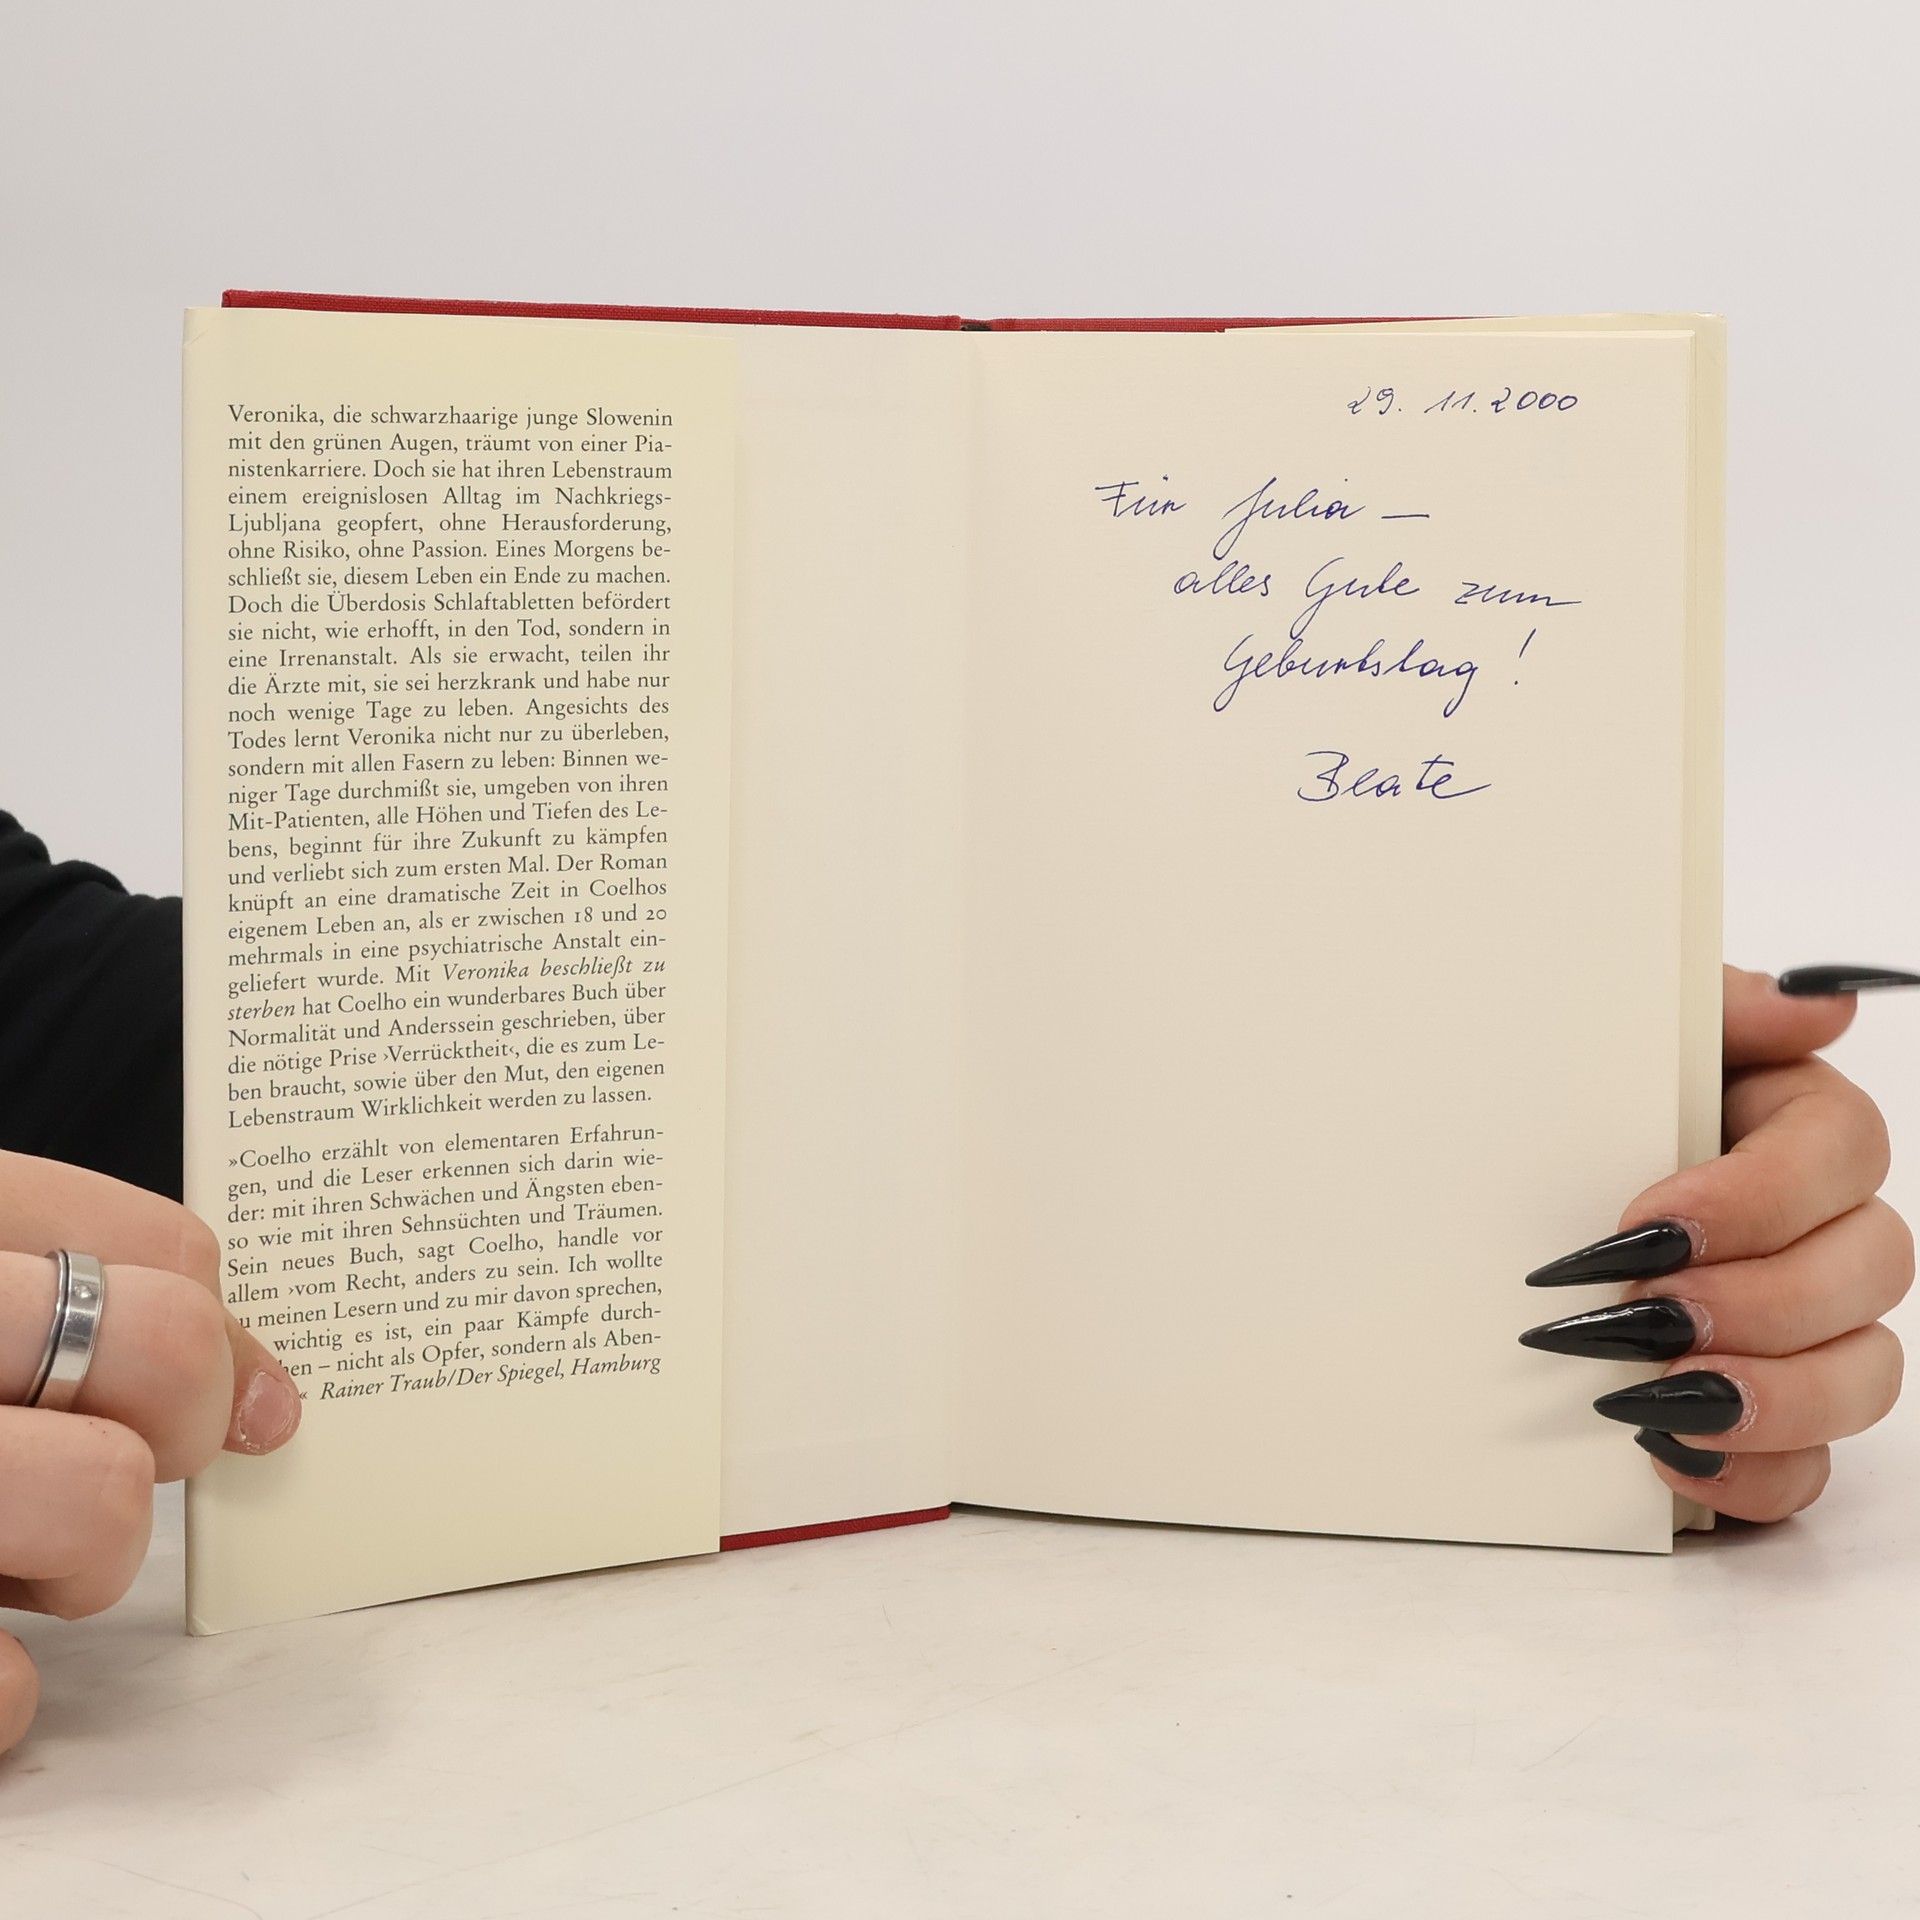 Veronika, die schwarzhaarige junge Slowenin
mit den grünen Augen, träumt von einer Pia-
nistenkarriere. Doch sie hat ihren Lebenstraum
einem ereignislosen Alltag im Nachkriegs-
Ljubljana geopfert, ohne Herausforderung,
ohne Risiko, ohne Passion. Eines Morgens be-
schließt sie, diesem Leben ein Ende zu machen.
Doch die Überdosis Schlaftabletten befördert
sie nicht, wie erhofft, in den Tod, sondern in
eine Irrenanstalt. Als sie erwacht, teilen ihr
die Ärzte mit, sie sei herzkrank und habe nur
noch wenige Tage zu leben. Angesichts des
Todes lernt Veronika nicht nur zu überleben,
sondern mit allen Fasern zu leben: Binnen we-
niger Tage durchmißt sie, umgeben von ihren
Mit-Patienten, alle Höhen und Tiefen des Le-
bens, beginnt für ihre Zukunft zu kämpfen
und verliebt sich zum ersten Mal. Der Roman
knüpft an eine dramatische Zeit in Coelhos
eigenem Leben an, als er zwischen 18 und 20
mehrmals in eine psychiatrische Anstalt ein-
geliefert wurde. Mit Veronika beschließt zu
sterben hat Coelho ein wunderbares Buch über
Normalität und Anderssein geschrieben, über
die nötige Prise ›Verrücktheit‹, die es zum Le-
ben braucht, sowie über den Mut, den eigenen
Lebenstraum Wirklichkeit werden zu lassen.
»Coelho erzählt von elementaren Erfahrun-
gen, und die Leser erkennen sich darin wie-
der: mit ihren Schwächen und Ängsten eben-
so wie mit ihren Sehnsüchten und Träumen.
Sein neues Buch, sagt Coelho, handle vor
allem ›vom Recht, anders zu sein. Ich wollte
meinen Lesern und zu mir davon sprechen,
wichtig es ist, ein paar Kämpfe durch-
– nicht als Opfer, sondern als Aben-
« Rainer Traub/Der Spiegel, Hamburg
29. 11. 2000
Für Julia —
alles Gute zum
Geburtstag !
Beate